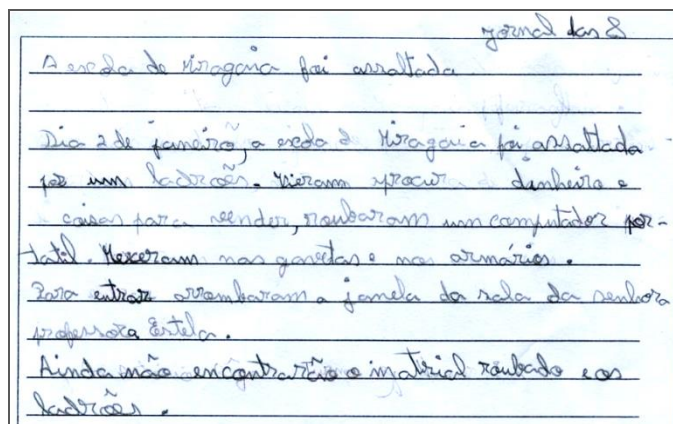 Jornal das 8
A escola de Miragaia foi assaltada
Dia 2 de janeiro, a escola d Miragaia foi assaltada
por um ladrões. Vieram procura d dinheiro e
coisas para vender, roubaram um computador por-
tatil. Mexeram nas gavetas e nos armários.
Para entrar arrombaram a janela da sala da senhora
professora Estela.
Ainda não encontrarão o material roubado e os
ladrões.